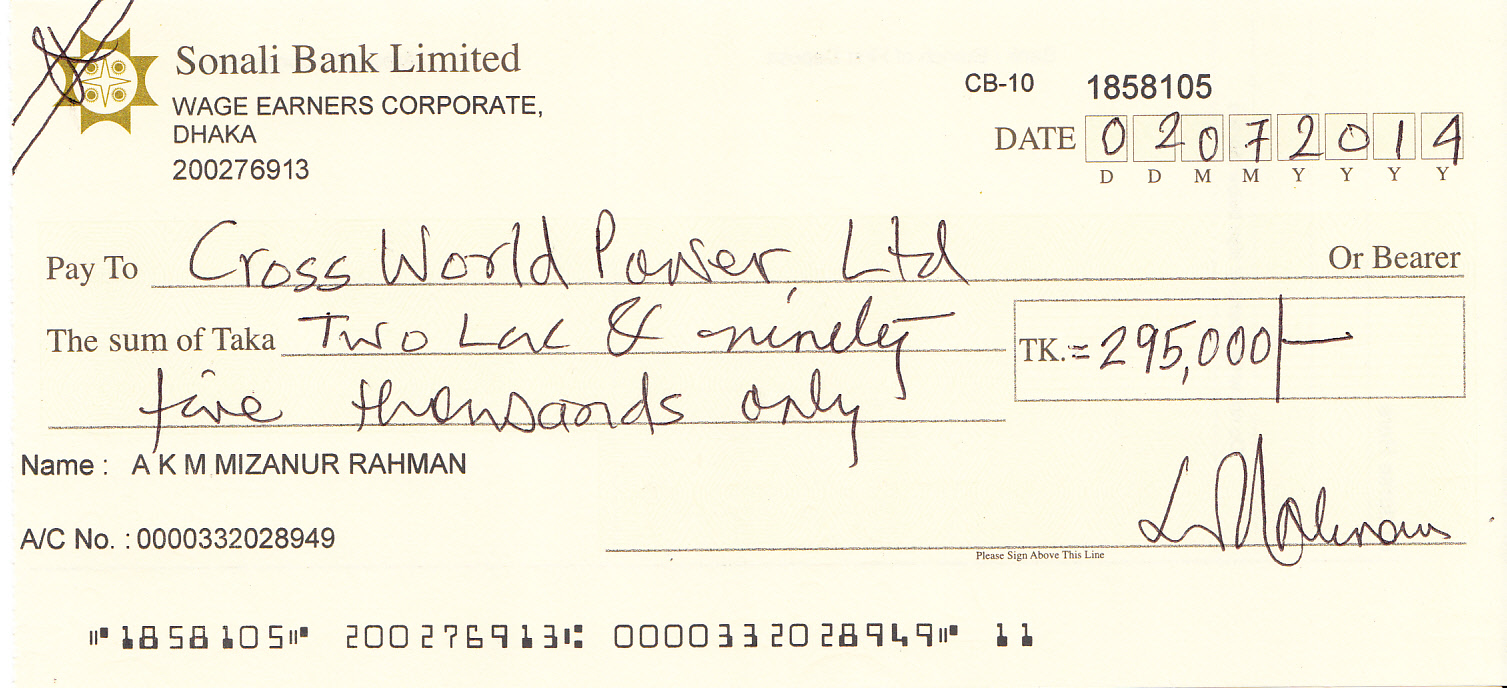 Sonali Bank Limited
WAGE EARNERS CORPORATE,
DHAKA
200276913
CB-10 1858105
DATE 0 2 0 7 2 0 1 4
D D M M Y Y Y Y
Pay To Cross World Power, Ltd Or Bearer
The sum of Taka Two Lac & ninety
five thousands only
TK.= 295,000/-
Name : A K M MIZANUR RAHMAN
A/C No. : 0000332028949
Please Sign Above This Line
⑈1858105⑈ 200276913⑆ 0000332028949⑈ 11